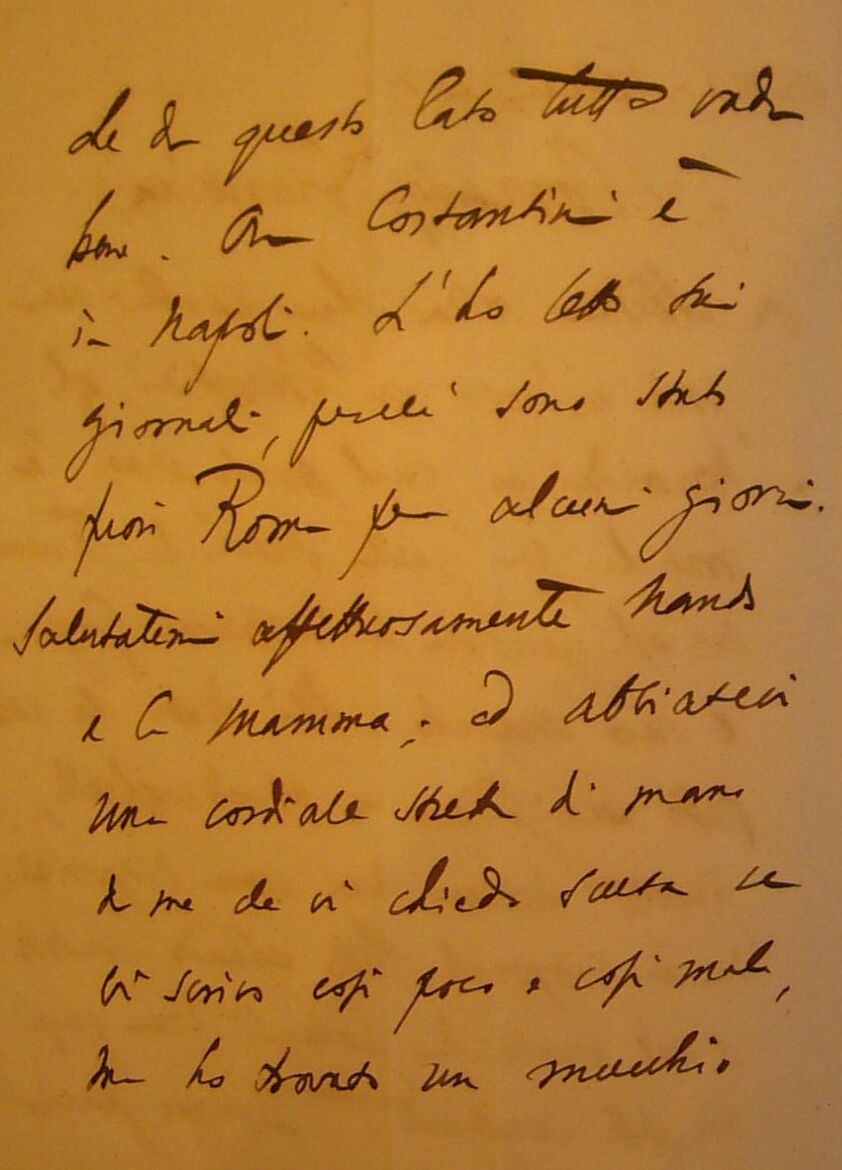 che da questo lato tutto vada
bene. Ora Costantini è
in Napoli. L'ho letto sui
giornali, perché sono stato
fuori Roma per alcuni giorni.
Salutatemi affettuosamente Nando
e la mamma; ed abbiatevi
una cordiale stretta di mano
da me che vi chiedo scusa se
vi scrivo così poco e così male,
ma ho trovato un mucchio